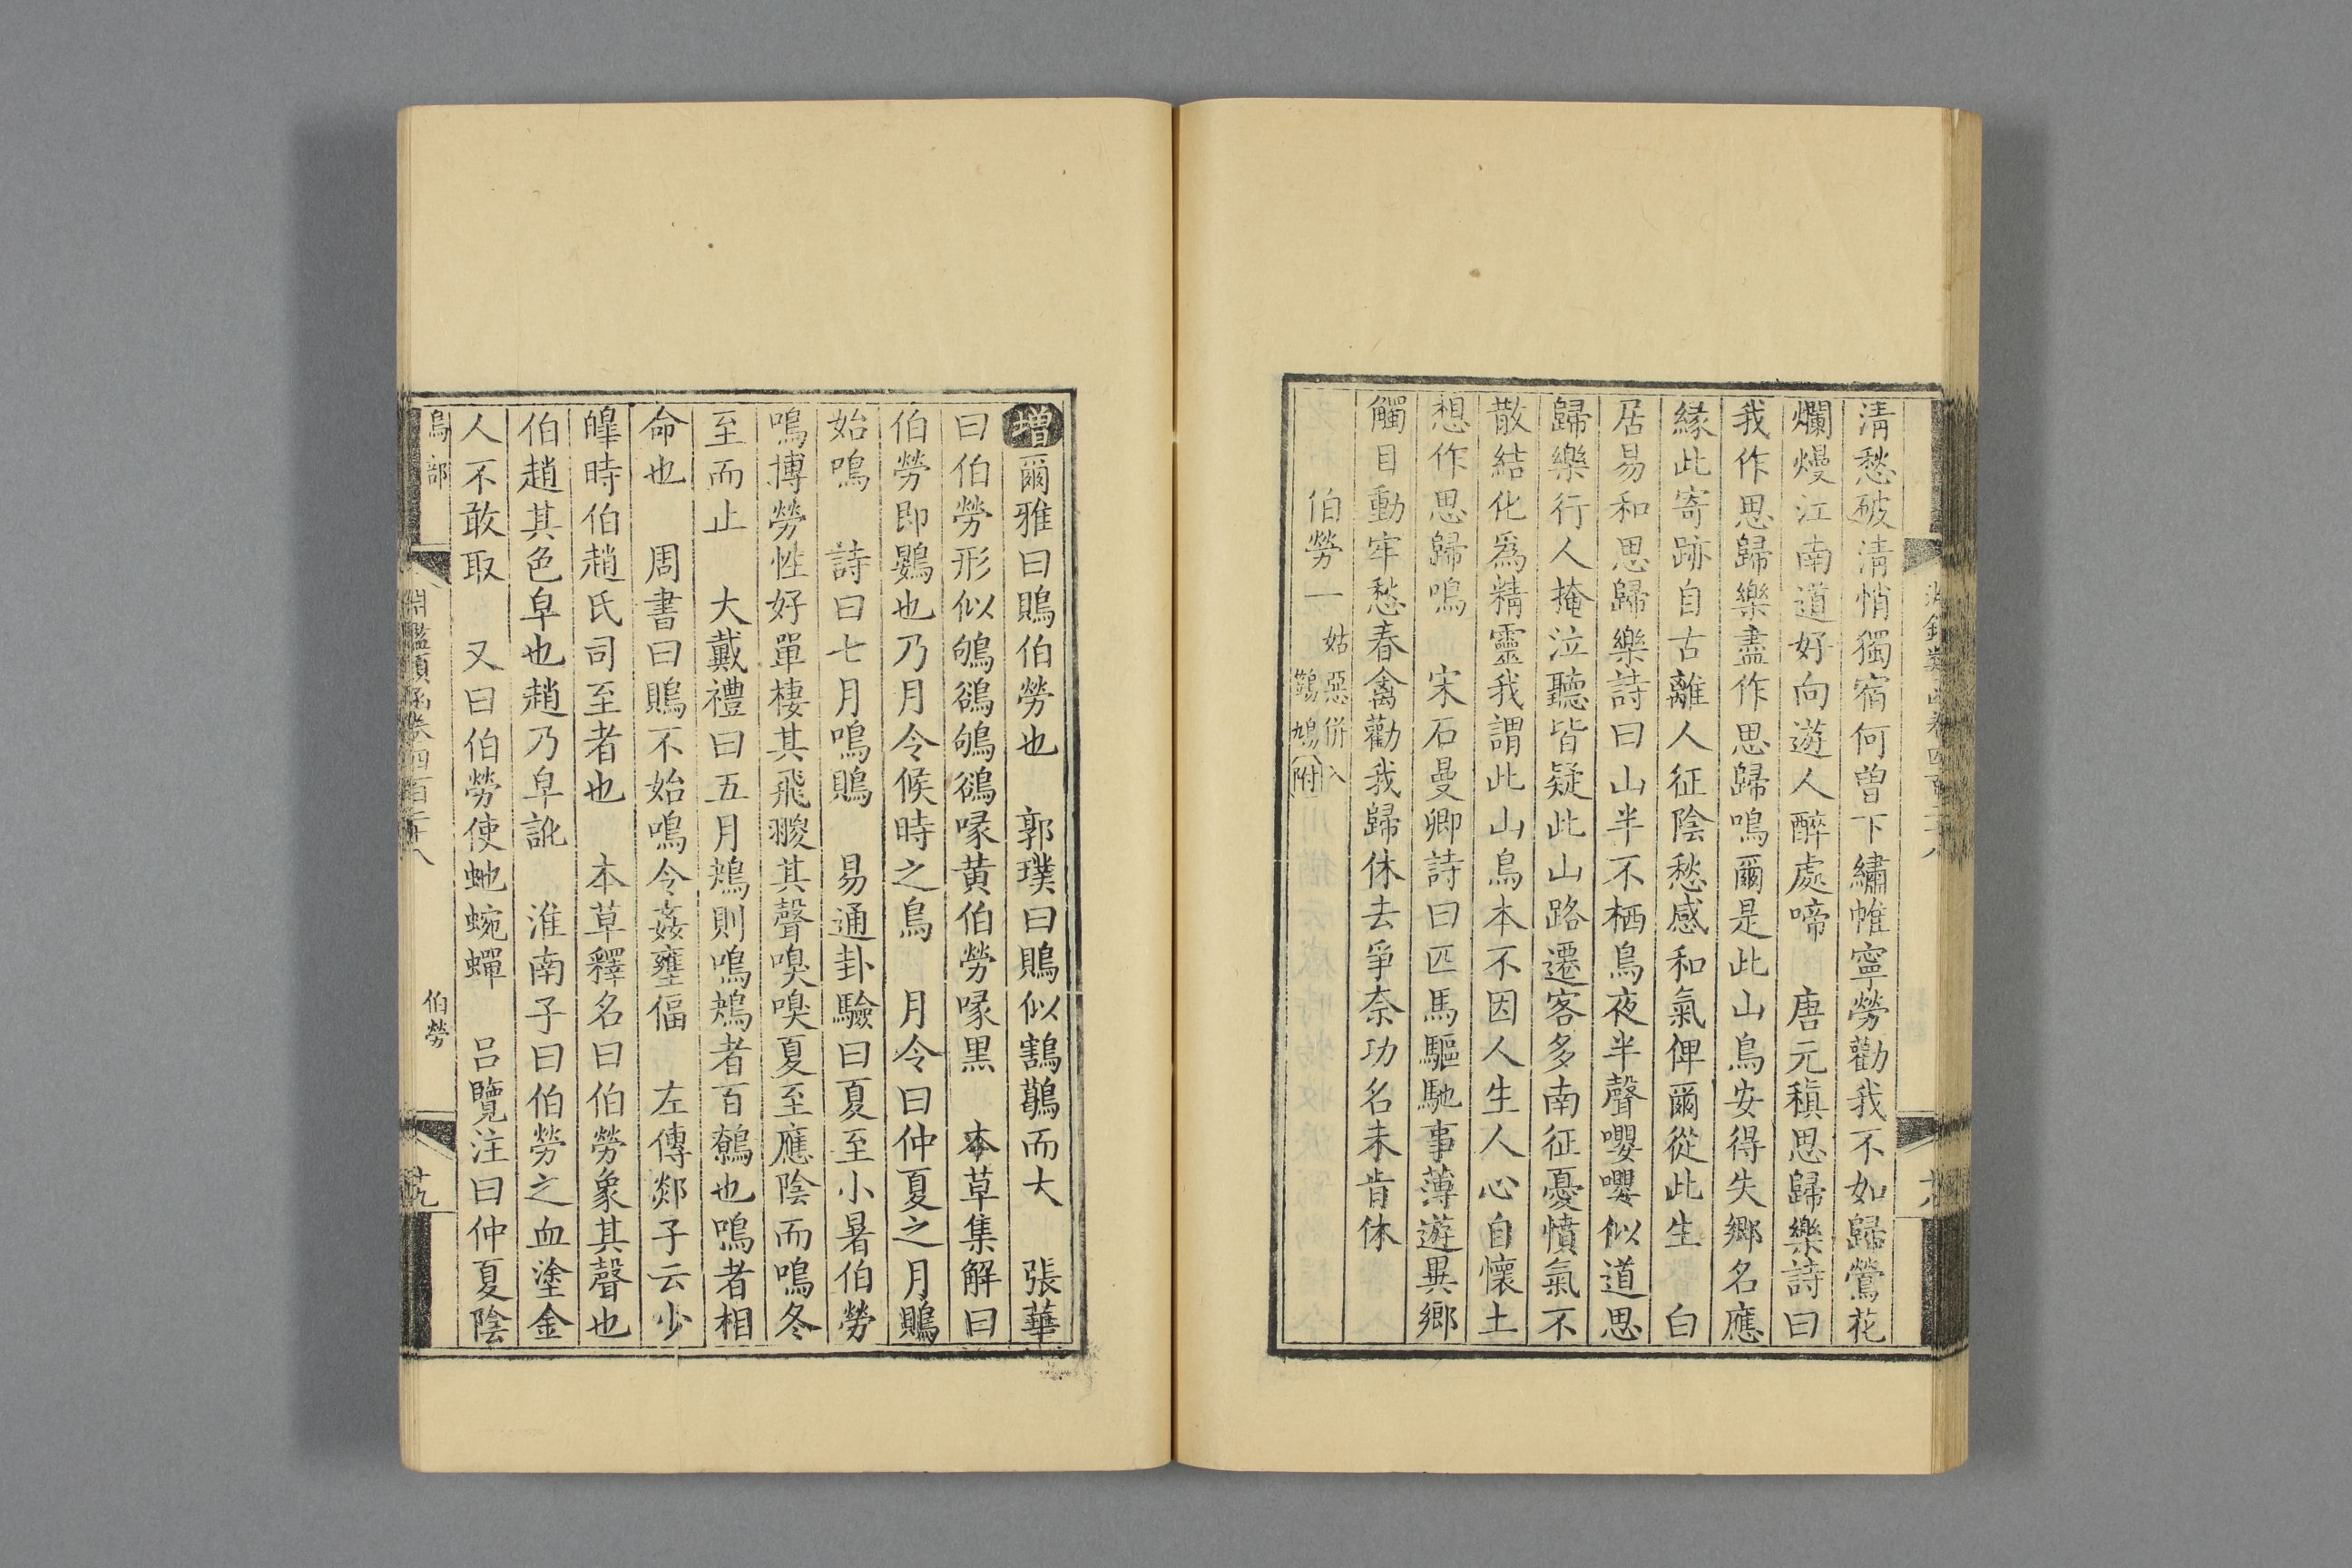 淸愁破淸悄獨宿何曽下繡帷寧勞勸我不如歸鶯花
爛熳江南道好向遊人醉處啼　唐元稹思歸樂詩曰
我作思歸樂盡作思歸鳴爾是此山鳥安得失鄉名應
緣此寄跡自古離人征陰愁感和氣俾爾從此生　白
居易和思歸樂詩曰山半不栖鳥夜半聲嚶嚶似道思
歸樂行人掩泣聽皆疑此山路遷客多南征憂憤氣不
散結化爲精靈我謂此山鳥本不因人生人心自懷土
想作思歸鳴　宋石曼卿詩曰匹馬驅馳事薄遊異鄉
觸目動牢愁春禽勸我歸休去爭奈功名未肯休
伯勞一　姑惡併入
鷑鳩附
增爾雅曰鵙伯勞也　郭璞曰鵙似鶷鶡而大　張華
曰伯勞形似鴝鵒鴝鵒喙黄伯勞喙黑　本草集解曰
伯勞即鶪也乃月令候時之鳥　月令曰仲夏之月鵙
始鳴　詩曰七月鳴鵙　易通卦驗曰夏至小暑伯勞
鳴博勞性好單棲其飛翪其聲嗅嗅夏至應陰而鳴冬
至而止　大戴禮曰五月鴂則鳴鴂者百鷯也鳴者相
命也　周書曰鵙不始鳴令姦壅偪　左傳郯子云少
皥時伯趙氏司至者也　本草釋名曰伯勞象其聲也
伯趙其色皁也趙乃皁訛　淮南子曰伯勞之血塗金
人不敢取　又曰伯勞使虵蜿蟬　呂覽注曰仲夏陰
鳥部
淵鑑類函卷四百二十八
伯勞